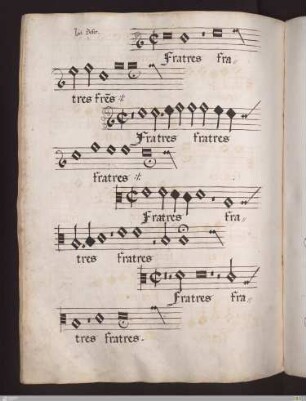 Fratres fra//
tres fr̄es ://:
Fratres fratres
fratres ://:
Fratres fra//
tres fratres
Fratres fra//
tres fratres.